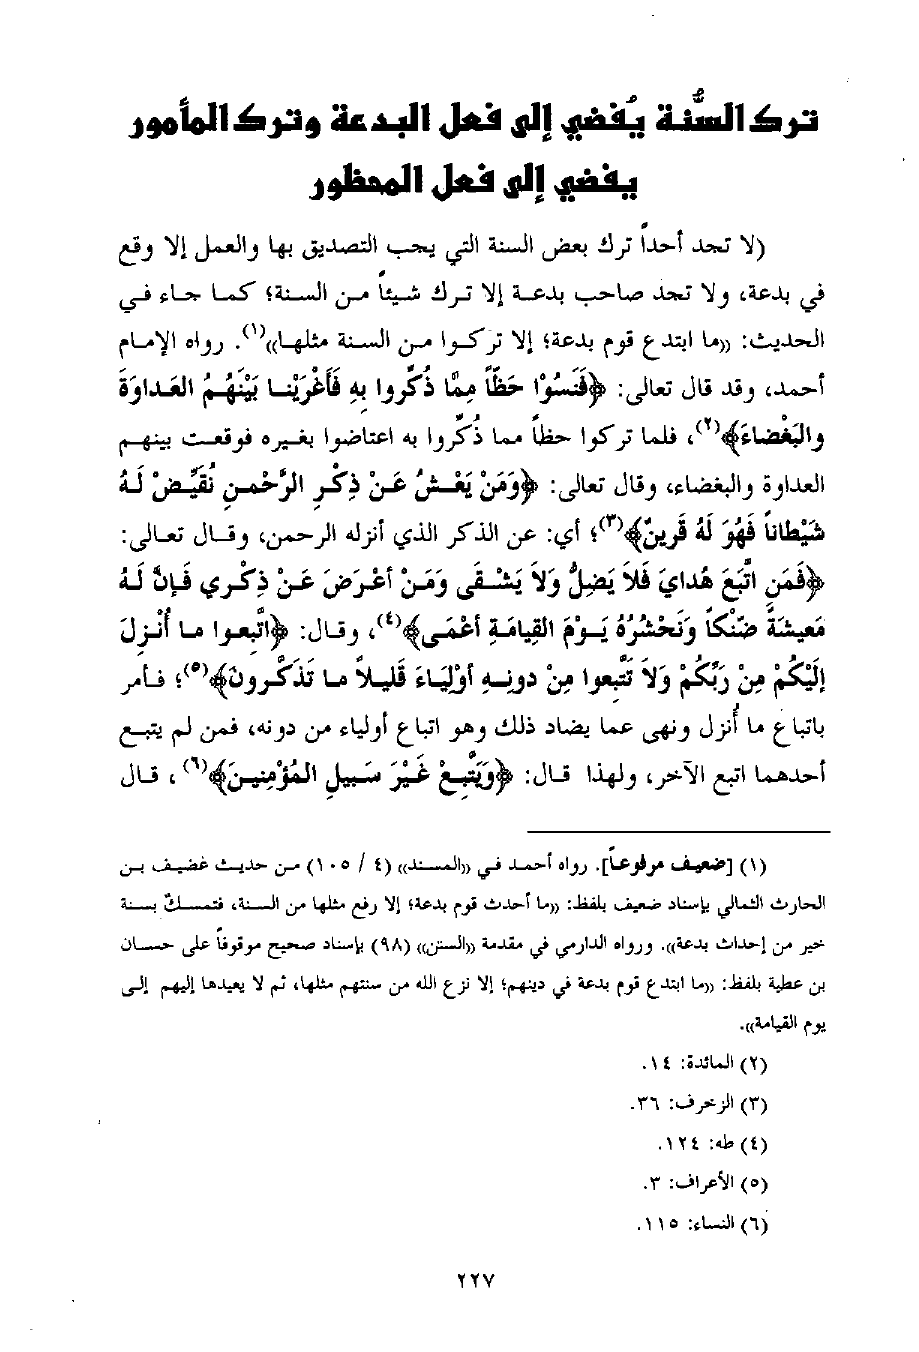 ترك السُّنة يُفضي إلى فعل البدعة وترك المأمور
يفضي إلى فعل المحظور
(لا تجد أحداً ترك بعض السنة التي يجب التصديق بها والعمل إلا وقع
في بدعة، ولا تجد صاحب بدعة إلا ترك شيئاً من السنة؛ كما جاء في
الحديث: «ما ابتدع قوم بدعة؛ إلا تركوا من السنة مثلها»(١). رواه الإمام
أحمد، وقد قال تعالى: ﴿فَنَسُوْا حَظّاً مِمَّا ذُكِّروا بِهِ فَأَغْرَيْنا بَيْنَهُمُ العَداوَةَ
والبَغْضاءَ﴾(٢)، فلما تركوا حظاً مما ذُكِّروا به اعتاضوا بغيره فوقعت بينهم
العداوة والبغضاء، وقال تعالى: ﴿وَمَنْ يَعْشُ عَنْ ذِكْرِ الرَّحْمنِ نُقَيِّضْ لَهُ
شَيْطاناً فَهُوَ لَهُ قَرينٌ﴾(٣)؛ أي: عن الذكر الذي أنزله الرحمن، وقال تعالى:
﴿فَمَنِ اتَّبَعَ هُدايَ فَلاَ يَضِلُّ وَلاَ يَشْقَى وَمَنْ أَعْرَضَ عَنْ ذِكْري فَإِنَّ لَهُ
مَعيشَةً ضَنْكاً وَنَحْشُرُهُ يَوْمَ القِيامَةِ أَعْمَى﴾(٤)، وقال: ﴿اتَّبِعوا ما أُنْزِلَ
إِلَيْكُمْ مِنْ رَبِّكُمْ وَلاَ تَتَّبِعوا مِنْ دونِهِ أَوْلِيَاءَ قَليلاً ما تَذَكَّرونَ﴾(٥)؛ فأمر
باتباع ما أُنزل ونهى عما يضاد ذلك وهو اتباع أولياء من دونه، فمن لم يتبع
أحدهما اتبع الآخر، ولهذا قال: ﴿وَيَتَّبِعْ غَيْرَ سَبيلِ المُؤْمِنينَ﴾(٦)، قال
(١) [ضعيف مرفوعاً]. رواه أحمد في «المسند» (٤ / ١٠٥) من حديث غضيف بن
الحارث الثمالي بإسناد ضعيف بلفظ: «ما أحدث قوم بدعة؛ إلا رفع مثلها من السنة، فتمسكٌ بسنة
خير من إحداث بدعة». ورواه الدارمي في مقدمة «السنن» (٩٨) بإسناد صحيح موقوفاً على حسان
بن عطية بلفظ: «ما ابتدع قوم بدعة في دينهم؛ إلا نزع الله من سنتهم مثلها، ثم لا يعيدها إليهم إلى
يوم القيامة».
(٢) المائدة: ١٤.
(٣) الزخرف: ٣٦.
(٤) طه: ١٢٤.
(٥) الأعراف: ٣.
(٦) النساء: ١١٥.
٢٢٧